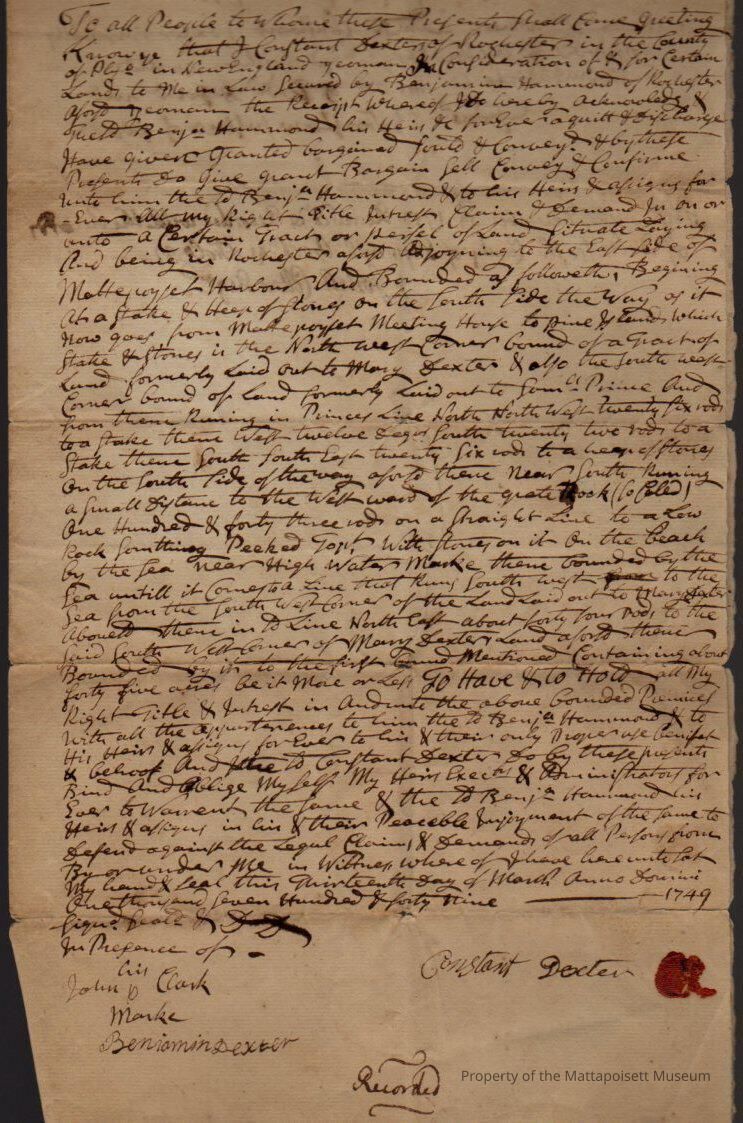 To all People to Whome these Presents Shall Come Greeting
Know ye that I Constant Dexter of Rochester in the County
of Plyo in New England yeoman In Consideration of & for Certain
Lands to Me in Law Secured by Benjamin Hammond of Rochester
aforsd yeoman the Receipt Whereof I do hereby acknowledg &
Benja Hammond his Heirs &c for Ever aquitt & discharge
Have given Granted bargained sould & Convey & by these
Presents do Give grant Bargain Sell Convey & Confirme
unto him the sd Benja Hammond & to his Heirs & assigns for
-Ever All my Right Title Intrest Claim & Demand In on or
unto a Certain Tract or persel of Land Situate Laying
And being in Rochester aforsd adjoyning to the East side of
Mattepoyset Harbour And Bounded as followeth, Begining
At a Stake & Heep of Stones on the South Side the Way as it
now goes from Mattepoyset Meeting House to pine Islands which
Stake & Stones is the North west Corner bound of a Tract of
Land formerly Laid out to Mary Dexter & also the South west
Corner bound of Land formerly Laid out to Samll Prince And
from thence Runing in Princes Line North North West twenty six rods
to a Stake thence West twelve degs South twenty two rods to a
Stake thence South South East twenty Six rods to a heap of Stones
on the South Side of the way aforsd thence Near South Runing
a Small Distanc to the West ward of the grate Rock (so Caled)
One Hundred & forty three rods on a Straight Line to a Low
Rock Somthing Peeked Topt With stones on it On the beach
by the Sea near High Water Marke thence bounded by the
Sea untill it Comes to a Line that Runs South west to the
Sea from the South West Corner of the Land Laid out to Mary Dexter
thence in sd Line North East about forty four rods to the
said South West Corner of Mary Dexters Land aforsd thence
Bounded by it to the first bound Mentioned Containing about
forty five acres be it More or Less To Have & to Hold all My
Right Title & Intrest in And unto the above bounded Premises
With all the appurtenences to him the sd Benja Hammond & to
His Heirs & assigns for Ever to his & their only Proper use benifat
& behoof And I the sd Constant Dexter Do by these presents
Bind And Oblige My Self My Heirs Execrs & Administrators for
Ever to Warrent the Same & the sd Benja Hammond his
Heirs & assigns in his & their Peaceble Injoyment of the same to
Defend against the Legal Claims & Demands of all Persons from
By or under Me in Wittness where of I have here unto Set
My hand & Seal this Thirteenth Day of March Anno Domini
One thousand Seven Hundred & forty Nine 1749
Signd Seald & DD
In Presence of -
his
John Clark
Marke
Constant Dexter
Benjamin Dexter
Recorded
Property of the Mattapoisett Museum